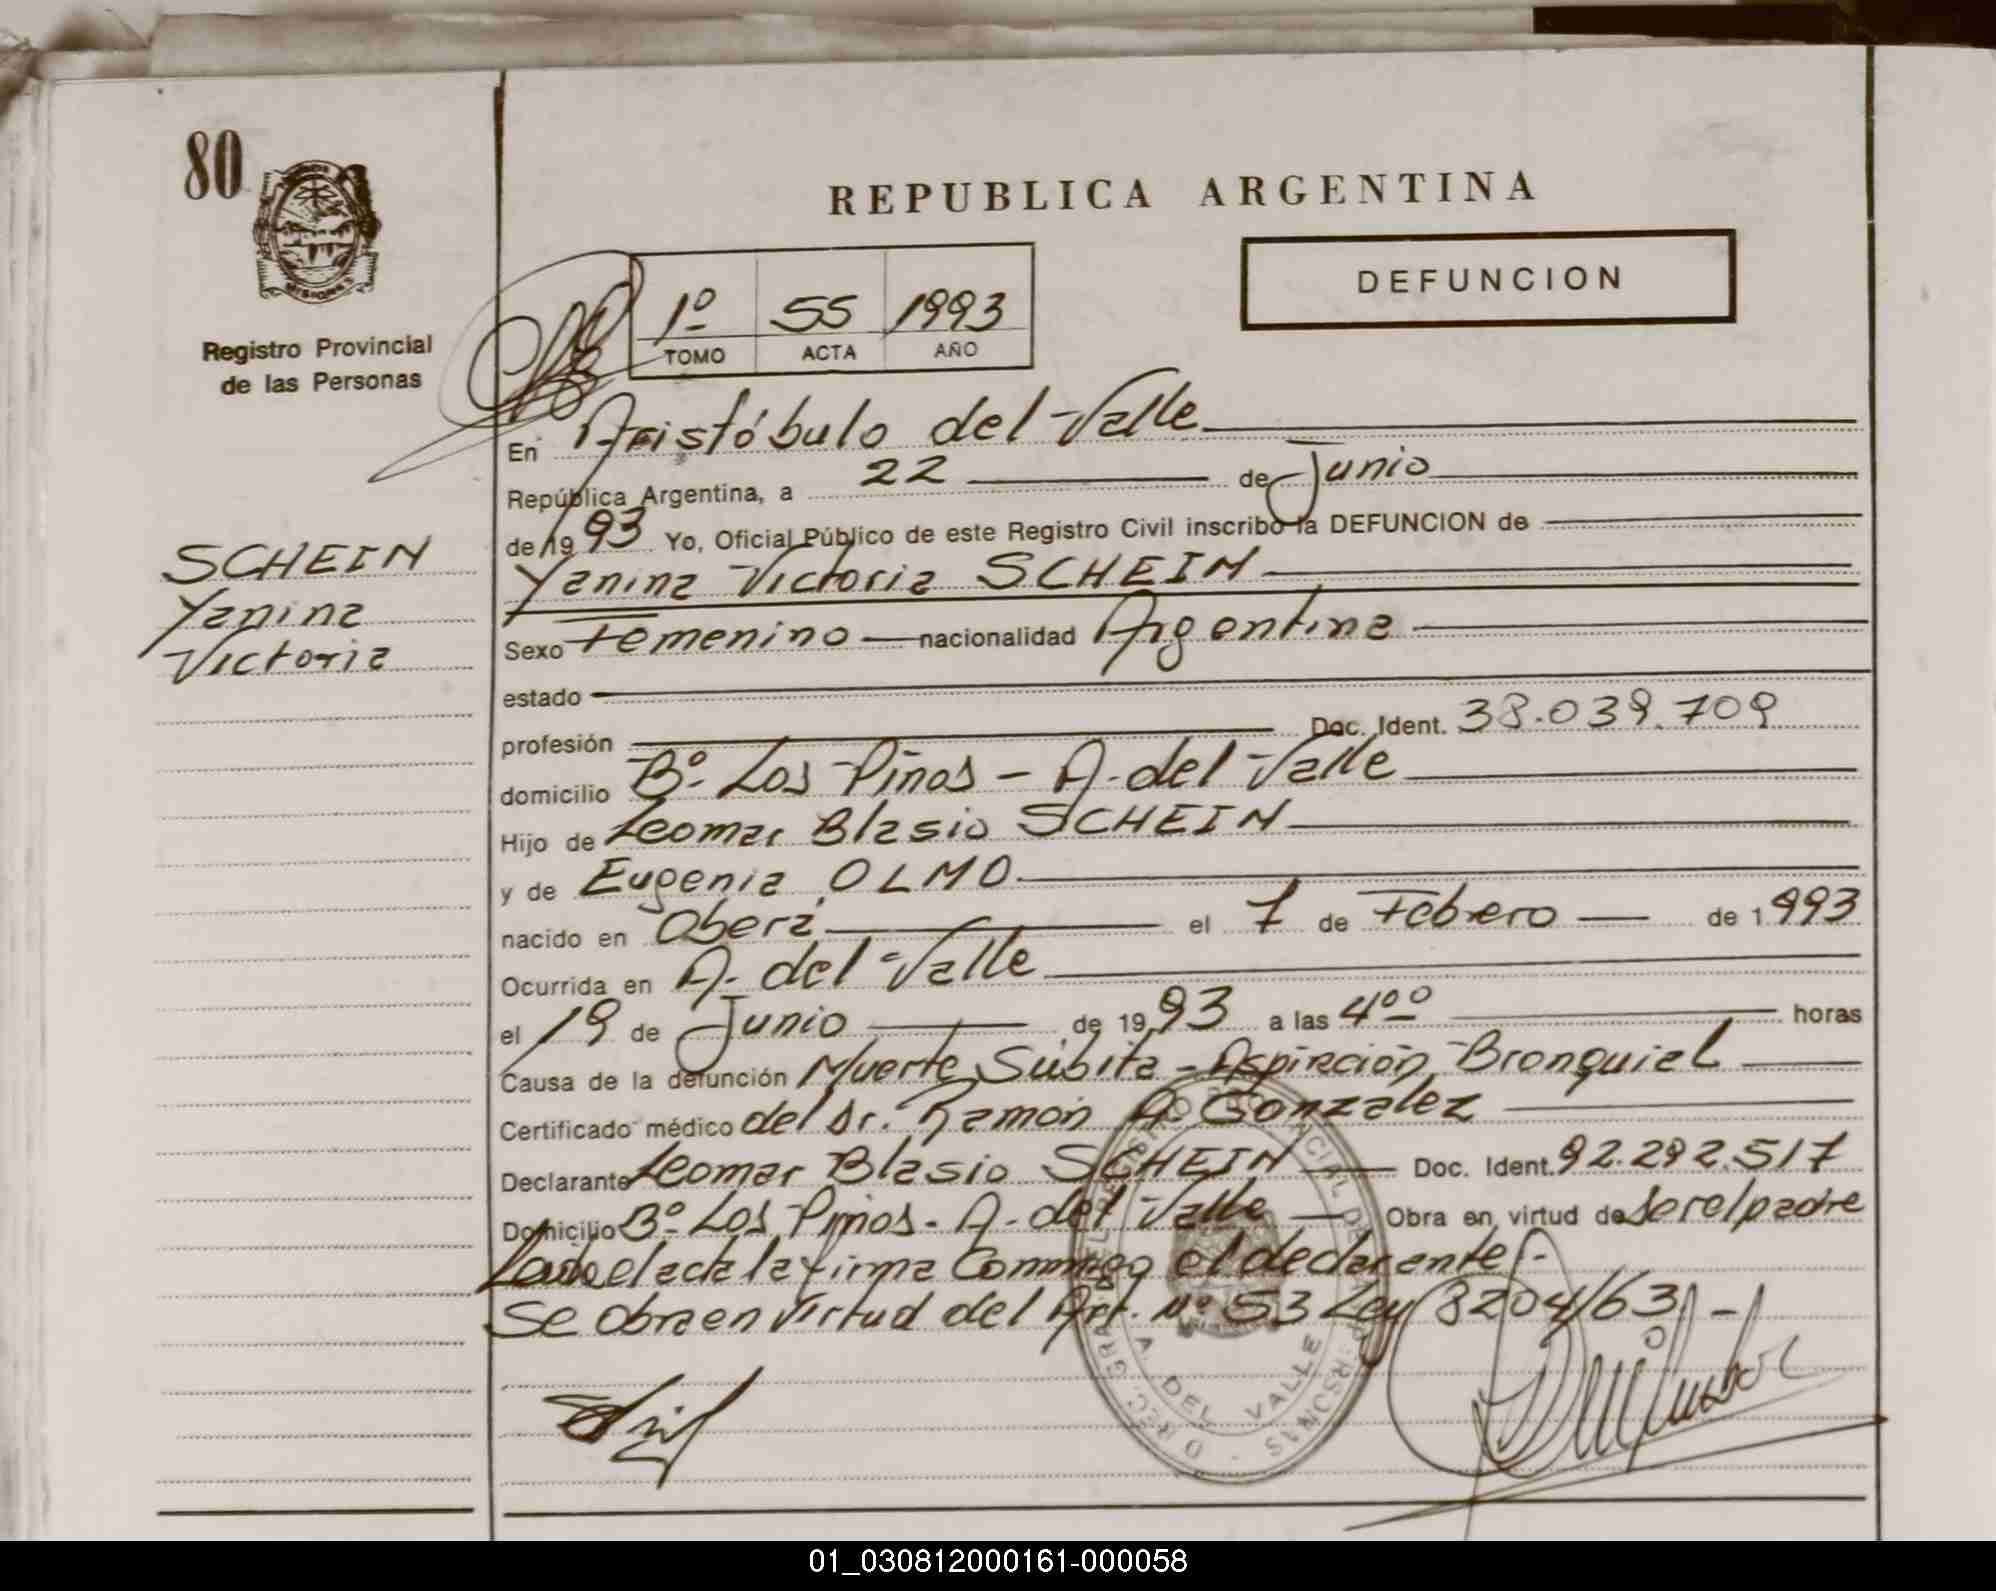 80
REPUBLICA ARGENTINA
DEFUNCION
1º 55 1993
TOMO ACTA AÑO
Registro Provincial
de las Personas
En Aristóbulo del Valle
República Argentina, a 22 de Junio
de 1993 Yo, Oficial Público de este Registro Civil inscribo la DEFUNCION de
SCHEIN
Yanina
Victoria
Yanina Victoria SCHEIN
Sexo Femenino nacionalidad Argentina
estado
profesión Doc. Ident. 38.039.709
domicilio Bº Los Pinos - A. del Valle
Hijo de Leomar Blasio SCHEIN
y de Eugenia OLMO
nacido en Oberá el 7 de Febrero de 1993
Ocurrida en A. del Valle
el 19 de Junio de 1993 a las 4⁰⁰ horas
Causa de la defunción Muerte Súbita - Aspiración Bronquial
Certificado médico del Dr. Ramón A. Gonzalez
Declarante Leomar Blasio SCHEIN Doc. Ident. 92.292.517
Domicilio Bº Los Pinos - A. del Valle Obra en virtud de ser el padre
el acta la firma Conmigo el declarante.-
Se obra en virtud del Art. Nº 53 Ley 8204/63.-
A. DEL VALLE
01_030812000161-000058